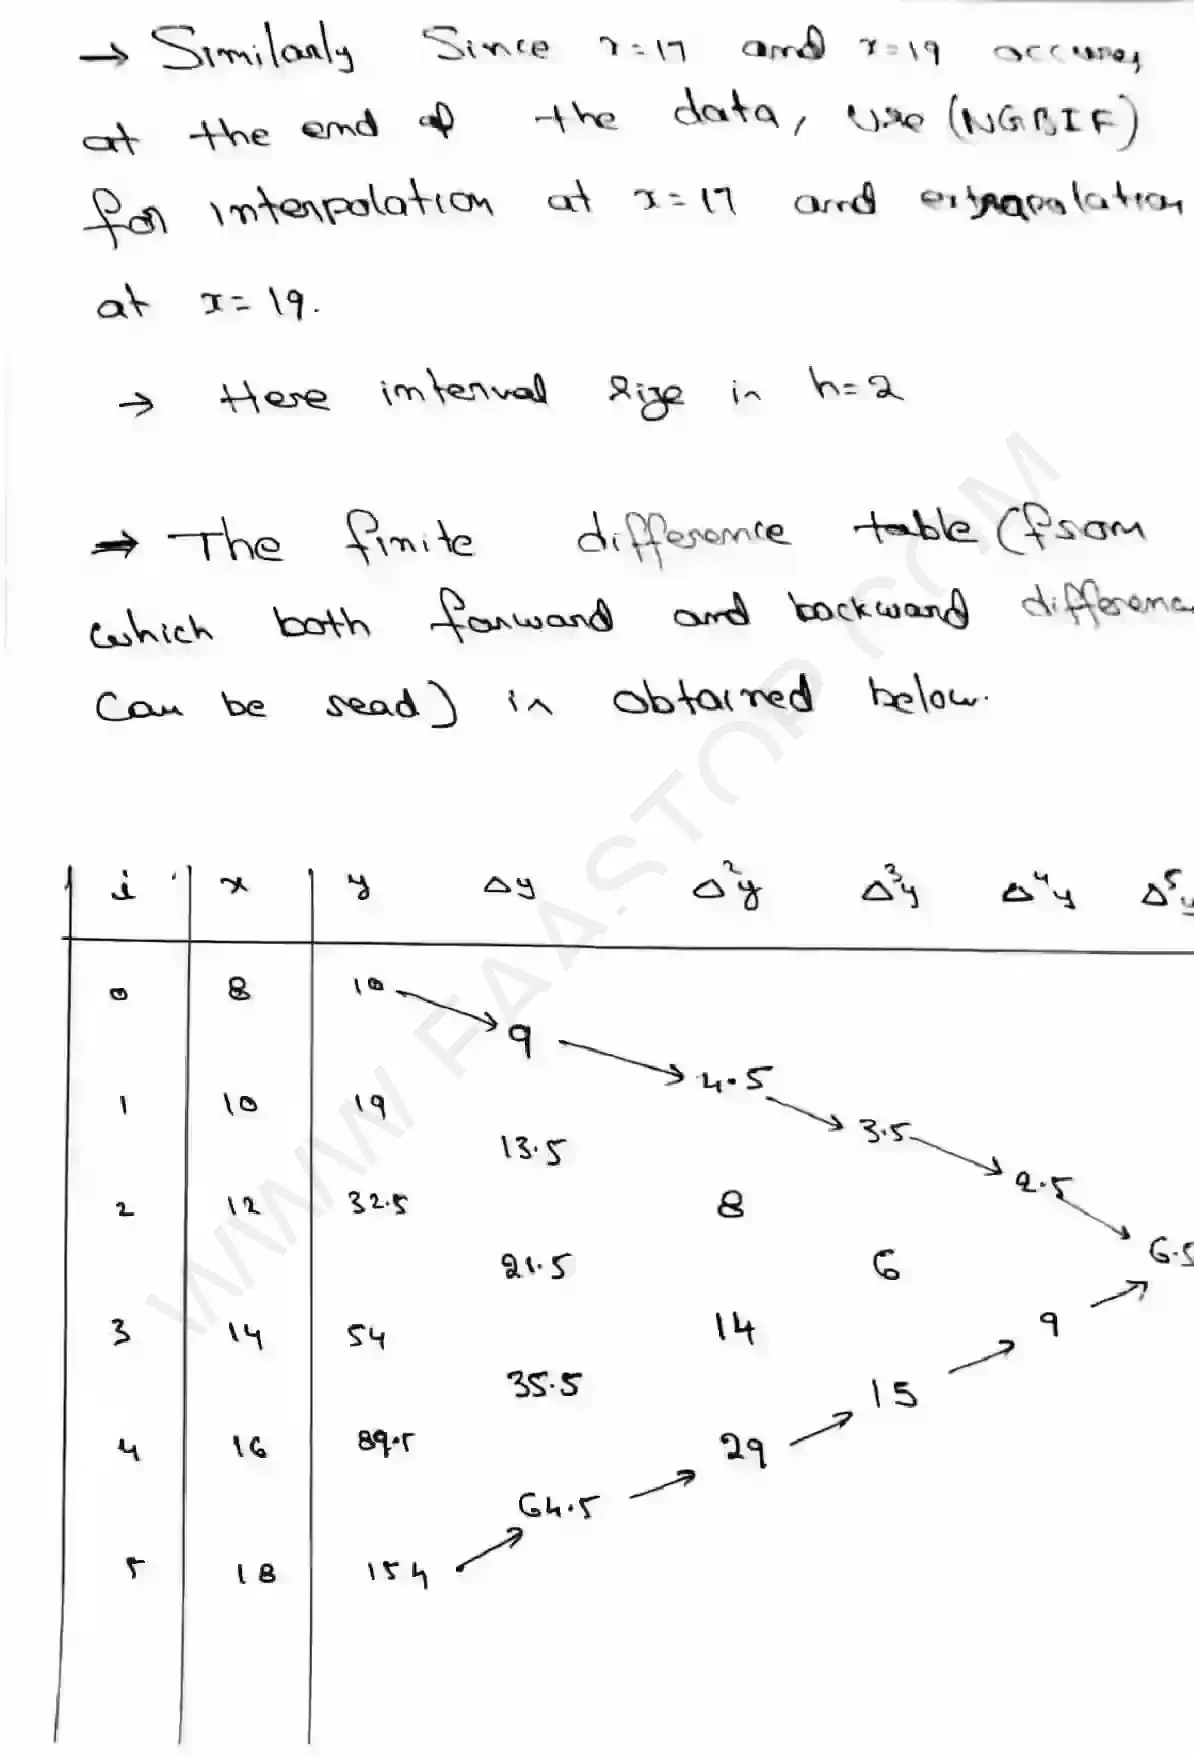 → Similarly Since x=17 and x=19 occurs
at the end of the data, use (NGBIF)
for interpolation at x=17 and extrapolation
at x=19.
→ Here interval size in h=2
⇒ The finite difference table (from
which both forward and backward differenc
can be read) in obtained below.
i x y Δy Δ²y Δ³y Δ⁴y Δ⁵y
0 8 10
9
4.5
1 10 19
3.5
13.5
2.5
2 12 32.5 8
6.5
21.5 6
3 14 54 14 9
35.5 15
4 16 89.5 29
64.5
5 18 154
WWW.FAASTOP.COM